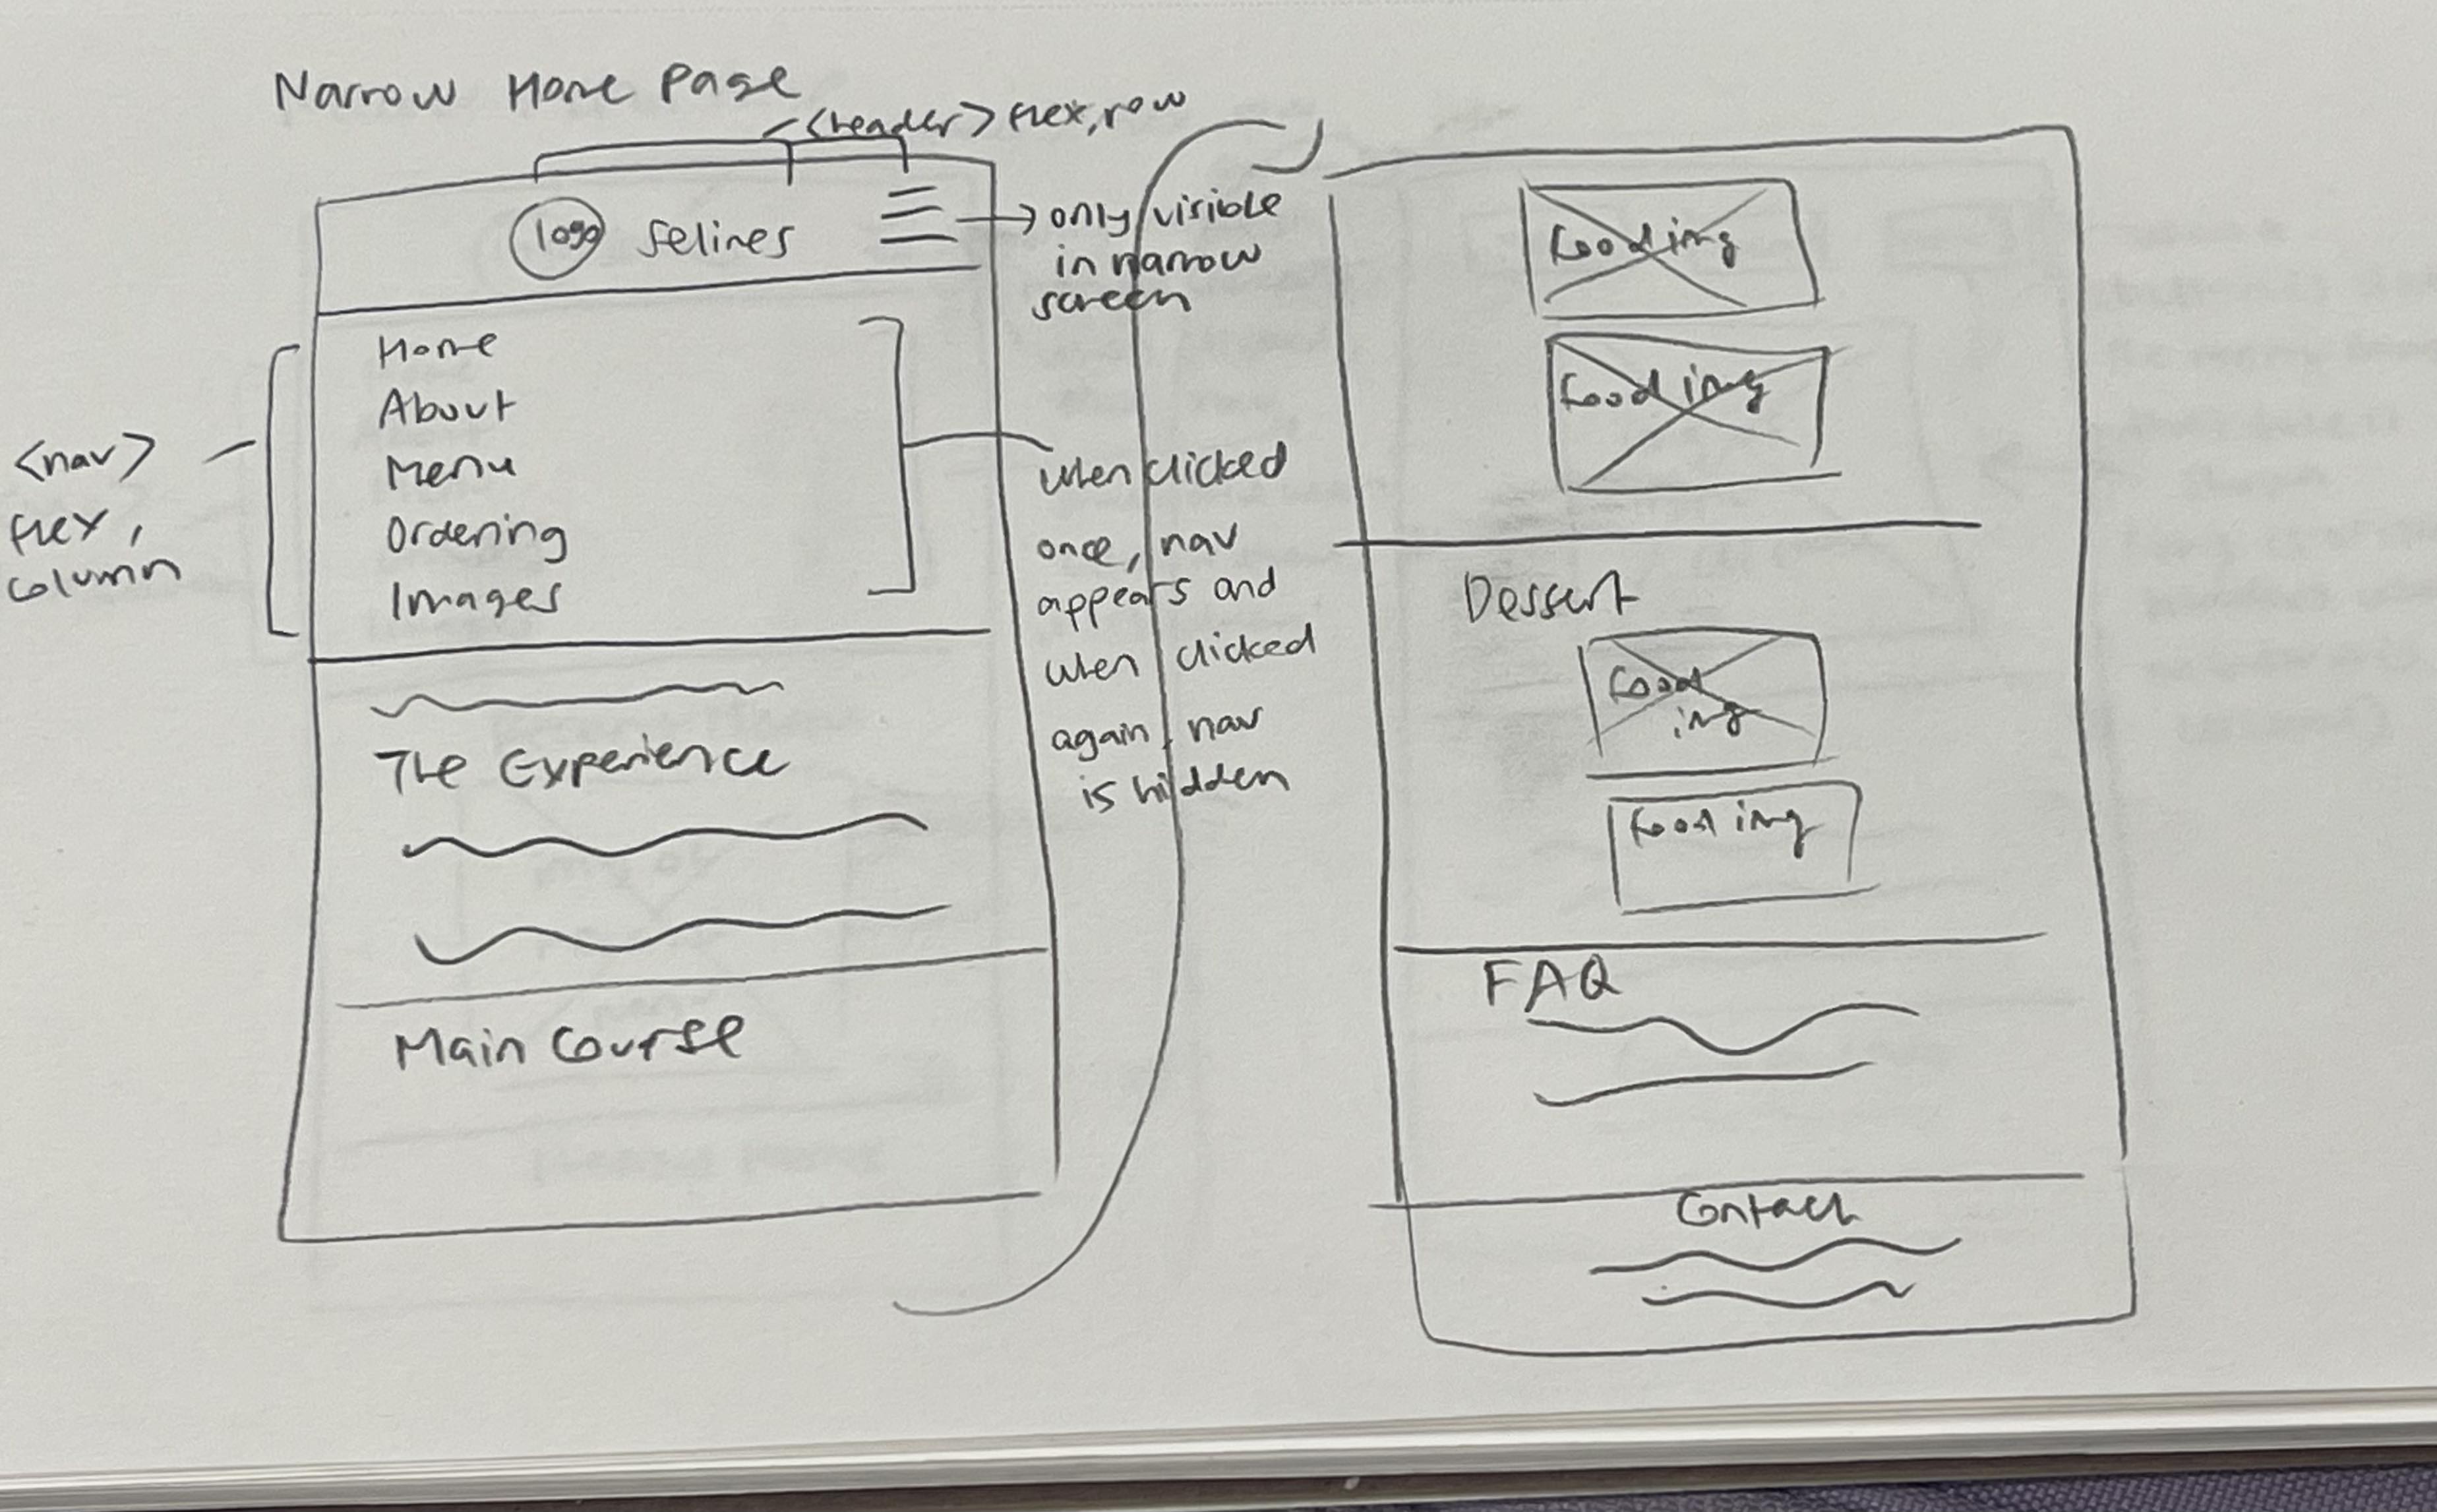 Narrow Home Page
<header> flex, row
logo Selines
only visible
in narrow
screen
<nav>
flex,
column
Home
About
Menu
Ordering
Images
when clicked
once, nav
appears and
when clicked
again, nav
is hidden
The Experience
Main Course
food img
food img
Dessert
food
img
food img
FAQ
Contact